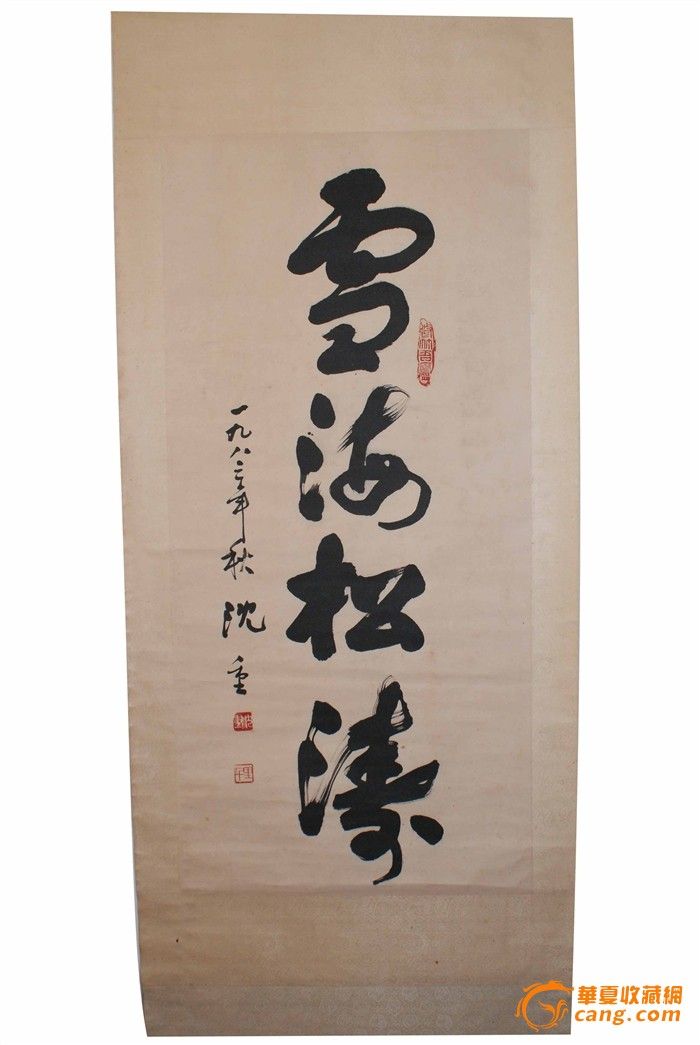 雪海松濤
一九八三年秋 沈重
華夏收藏網
cang.com